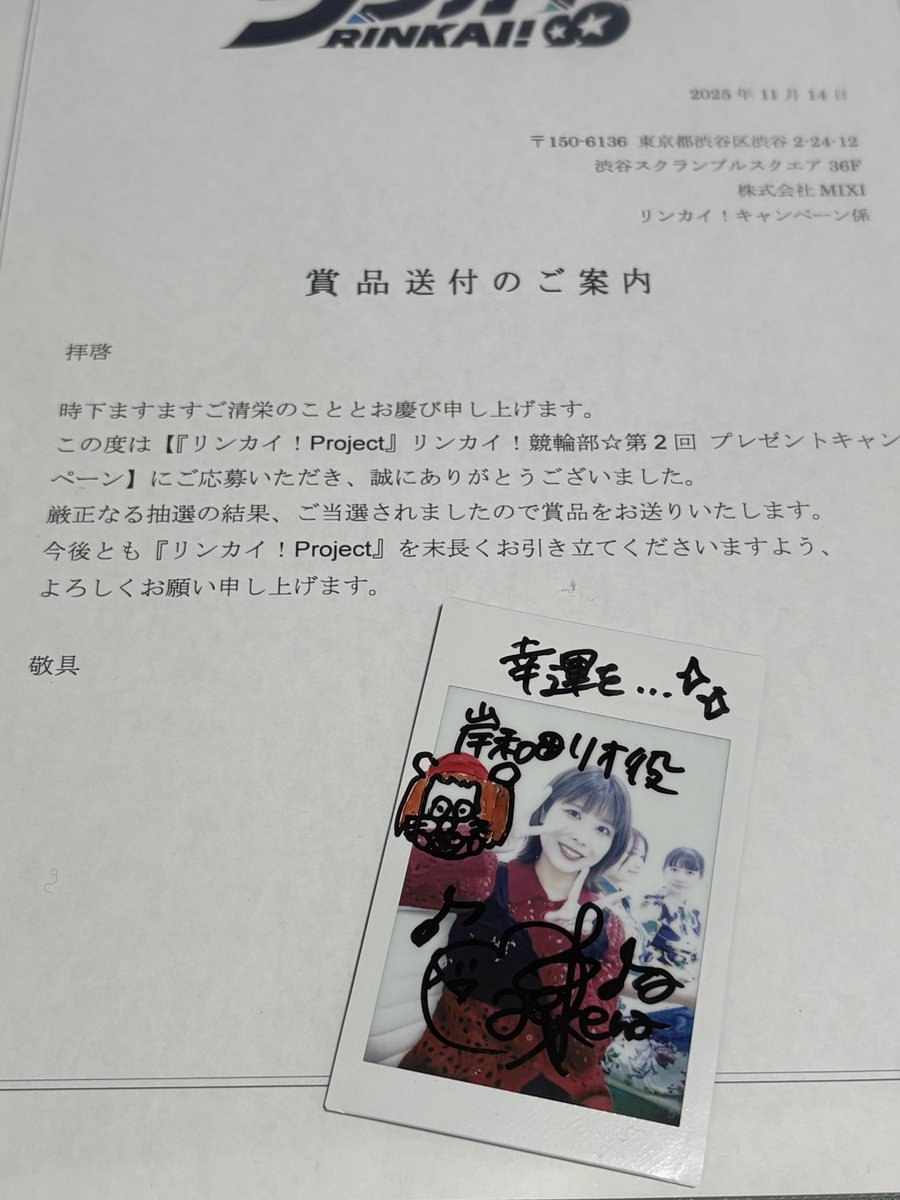 RINKAI!
2025 年 11 月 14 日
〒150-6136 東京都渋谷区渋谷 2-24-12
渋谷スクランブルスクエア 36F
株式会社 MIXI
リンカイ！キャンペーン係
賞品送付のご案内
拝啓
時下ますますご清栄のこととお慶び申し上げます。
この度は【『リンカイ！Project』リンカイ！競輪部☆第 2 回 プレゼントキャン
ペーン】にご応募いただき、誠にありがとうございました。
厳正なる抽選の結果、ご当選されましたので賞品をお送りいたします。
今後とも『リンカイ！Project』を末長くお引き立てくださいますよう、
よろしくお願い申し上げます。
敬具
幸運を...
岸和田リオ役